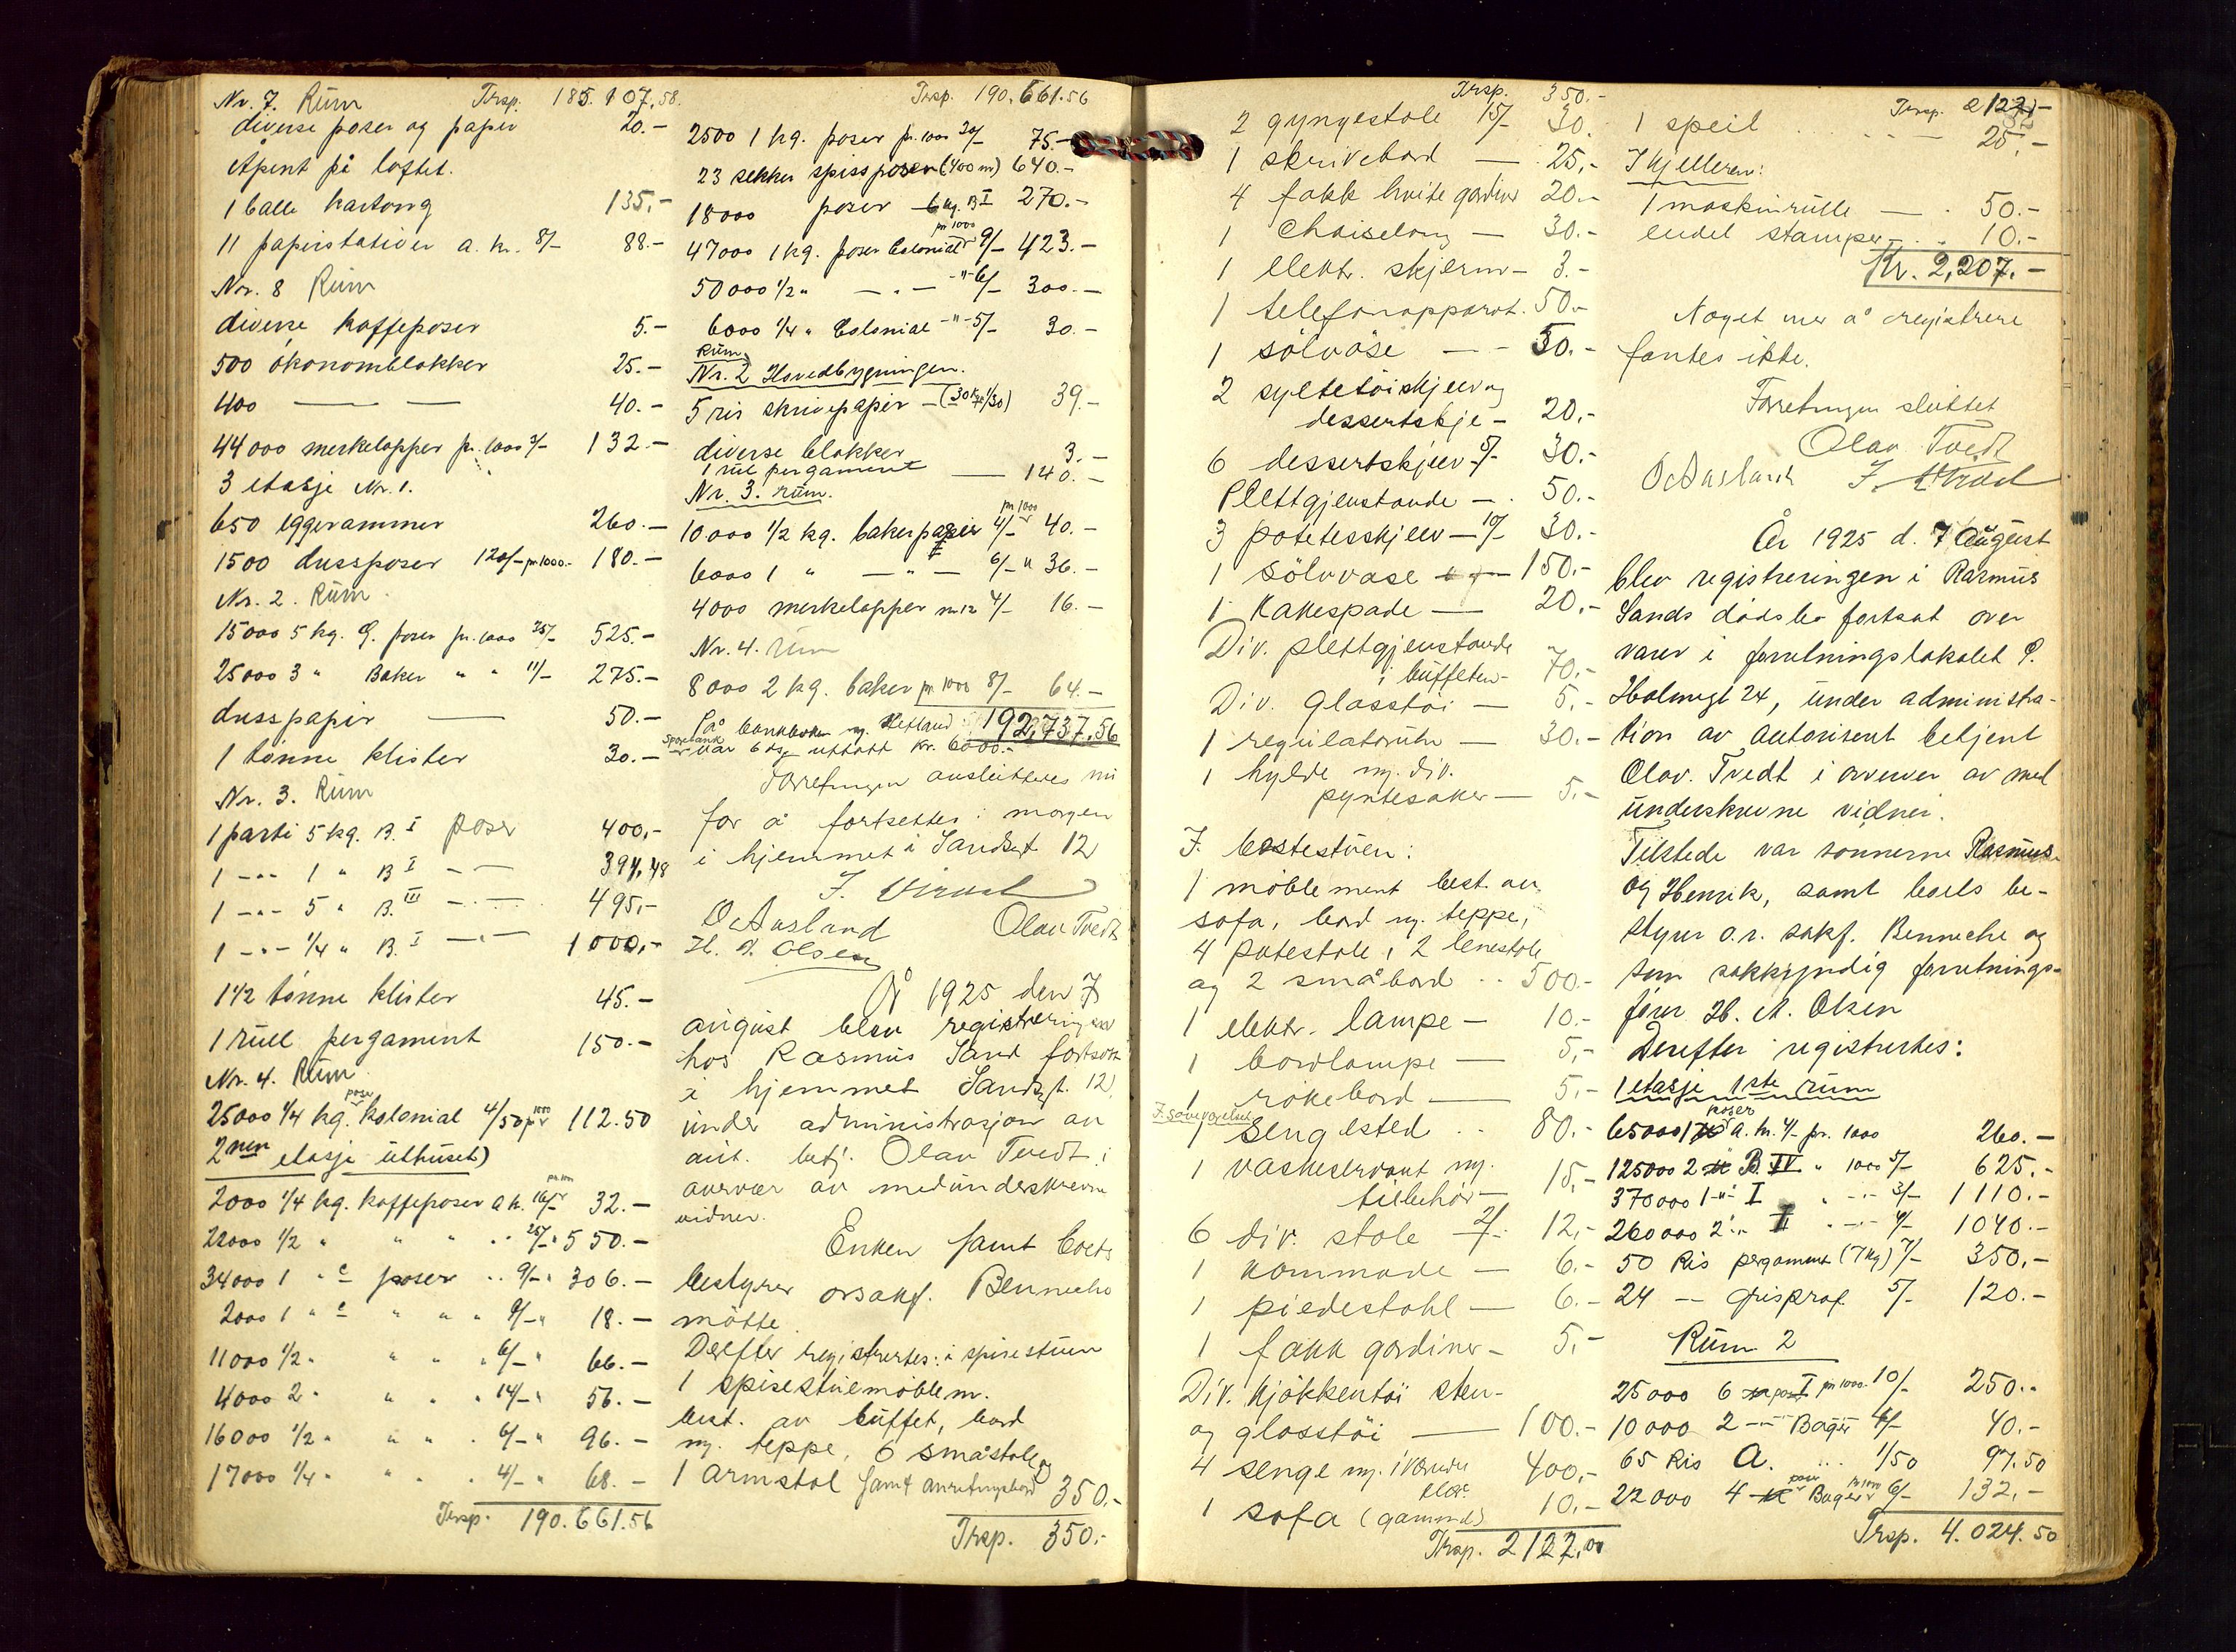 Nr. 7. Rum Trsp. 185.107,58.
diverse poser og papir 20.-
Åpent på loftet.
1 balle kartong 135,-
11 papirstativer a. kr. 8/- 88.-
Nr. 8 Rum
diverse kaffeposer 5.-
500 økonomblokker 25.-
400 — — 40.-
44000 merkelapper pr. 1000 3/- 132.-
3 etasje Nr. 1.
650 eggerammer 260.-
1500 dussposer 120/- pr 1000.- 180.-
Nr. 2. Rum
15000 5 kg. G. poser pr. 1000 35/- 525.-
25000 3 " Baker " " 11/- 275.-
dusspapir — 50.-
1 tønne klister 30.-
Nr. 3. Rum
1 parti 5 kg. B. I poser 400,-
1 -"- 1 " B I -- — 394,48
1 -"- 5 " B. III -"- 495,-
1 -"- 1/4 " B. I -"- 1000,-
1 1/2 tønne klister 45.-
1 rull pergament 150.-
Nr. 4. Rum
25000 1/4 kg. poser kolonial 4/50 pr 1000 112.50
2nen etasje uthuset)
2000 1/4 kg. kaffeposer a k. 16/- pr. 1000 32.-
22000 1/2 " " " " 25/- " 550.-
34000 1 " c poser " 9/- " 306.-
2000 1 " c " " " 9/- " 18.-
11000 1/2 " " " " 6/- " 66.-
4000 2 " " " " 14/- " 56.-
16000 1/2 " " " " 6/- " 96.-
17000 1/4 " " " " 4/- " 68.-
Trsp. 190.661.56
Trsp. 190.661.56
2500 1 kg. poser pr. 1000 30/- 75.-
23 sekker spissposer (400 m) 640.-
18000 poser 6 kg. B I 270.-
47000 1 kg. poser Colonial pr 1000 9/- 423.-
50000 1/2 " — " — -"- 6/- 300.-
6000 1/4 " Colonial -"- 5/- 30.-
Rum
Nr. 2 Hovedbygningen.
5 ris skrivepapir - (30 kg 1/30) 39.-
diverse blokker 3.-
1 rul pergament — 140.-
Nr. 3. rum.
10.000 1/2 kg. baker papir pr 1000 4/- 40.-
6000 1 " — " — 6/- " 36.-
4000 merkelapper nr 12 4/- 16.-
Nr. 4. rum
8000 2 kg. baker pr 1000 8/- 64.-
192,737,56
På bankboken ny. Hetland
Sparebank var 6 ds. uttatt kr. 6000.-
Forretningen avsluttedes nu
for å fortsettes i morgen
i hjemmet i Sandsgt 12
O. Ausland
H. A. Olsen Olav Tvedt
År 1925 den 7
august blev registreringen
hos Rasmus Sand fortsatt
i hjemmet Sandsgt. 12,
under administrasjon av
aut. betj. Olav Tvedt i
overvær av medunderskrevne
vidner.
Enken samt boets
bestyrer orsakf. Bennecho
møtte.
Derefter registrertes: i spisestuen
1 spisestuemøblem.
best. av buffet, bord
m. teppe, 6 småstole og
1 armstol samt anretningsbord 350.-
Trsp. 350.-
Trsp. 350.-
2 gyngestole 15/- 30.
1 skrivebord — 25,-
4 fakk hvite gardiner 20.-
1 Chaiselong — 30.-
1 elektr. skjerm - 3.-
1 telefonapparat. 50.-
1 sølvøse — - 50.-
2 syltetøiskjeer og
dessertskje - 20,-
6 dessertskjeer 5/- 30.-
Plettgjenstande - . 50.-
3 potetesskjeer - 10/- 30.-
1 sølvvase 150.-
1 Kakespade — 20,-
Div. plettgjenstande
i buffeten - 70.-
Div. glasstøi — 5.-
1 regulatorur — 30.-
1 hylde m. div.
pyntesaker — 5.-
I bestestuen:
1 møblement best. av
sofa, bord m. teppe,
4 putestole, 2 lenestole
og 2 småbord .. 500.-
1 elektr. lampe - 10.-
1 bordlampe — 5,-
1 røkebord — 5.-
I soveværelset
1 sengested .. 80.-
1 vaskeservant m.
tilbehør - 15,-
6 div. stole 2/- 12,-
1 kommode — 6.-
1 piedestahl — 6.-
1 fakk gardiner - 5,-
Div. kjøkkentøi sten-
og glasstøi — 100.-
4 senge m. i værelse 400,-
1 sofa (gammel) 10.-
Trsp. 2122,00
Trsp. 2122.-
1 speil . .. - 25.-
I kjelleren:
1 maskinrulle — . 50.-
endel stamper - . . 10.-
Kr. 2,207.-
Noget mer å registrere
fantes ikke.
Forretningen sluttet
Olav Tvedt
O. Ausland
År 1925 d. 7 August
blev registreringen i Rasmus
Sands dødsbo fortsat over
varer i forretningslokalet P.
Holmsgt 24, under administra-
tion av autorisert betjent
Olav. Tvedt i overvær av med
underskrevne vidner.
Tilstede var sønnerne Rasmus
og Henrik, samt boets be-
styrer o.r. sakf. Benneche og
som sakkyndig forretnings-
fører H. A. Olsen
Derefter registrertes:
1 etasje 1ste rum
65000 1 kg poser a. kr. 4/- pr. 1000 260.-
125000 2 " B. IV " 1000 5/- 625.-
370000 1 -"- I " -"- 3/- 1110.-
260000 2 " II " -"- 4/- 1040.-
50 Ris pergament (7 kg) 7/- 350,-
24 — Grisprof. 5/- 120.-
Rum 2
25000 6 I pr 1000. 10/- 250..
10000 2 -"- Bager 4/- 40.-
65 Ris A. ... 1/50 97.50
22000 4 poser Bager pr 1000 6/- 132,-
Trsp. 4.024.50